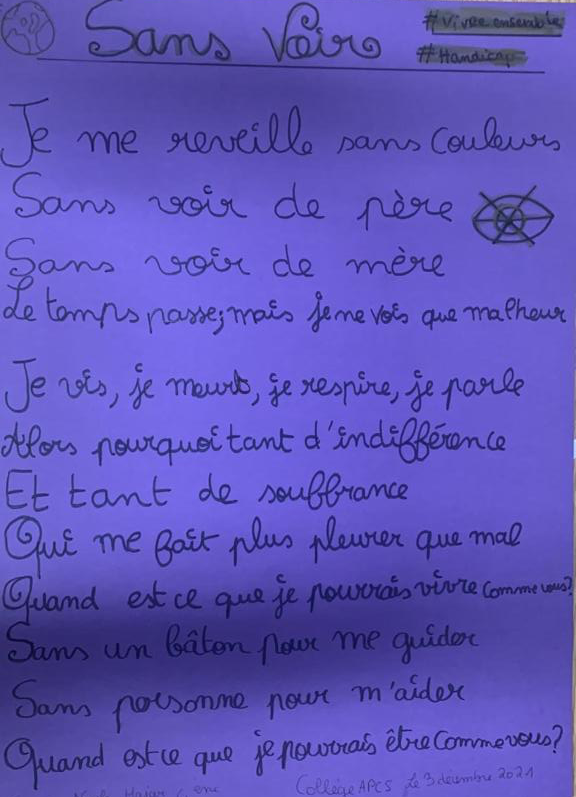 Sans Voir
#Vivre ensemble
#Handicap
Je me reveille sans couleurs
Sans voir de père
Sans voir de mère
Le temps passe, mais je ne vois que malheur
Je vis, je meurt, je respire, je parle
Alors pourquoi tant d'indifférence
Et tant de souffrance
Qui me fait plus pleurer que mal
Quand est ce que je pourrais vivre comme vous?
Sans un bâton pour me guider
Sans personne pour m'aider
Quand est ce que je pourrais être comme vous?
Collège APCS Le 3 décembre 2021